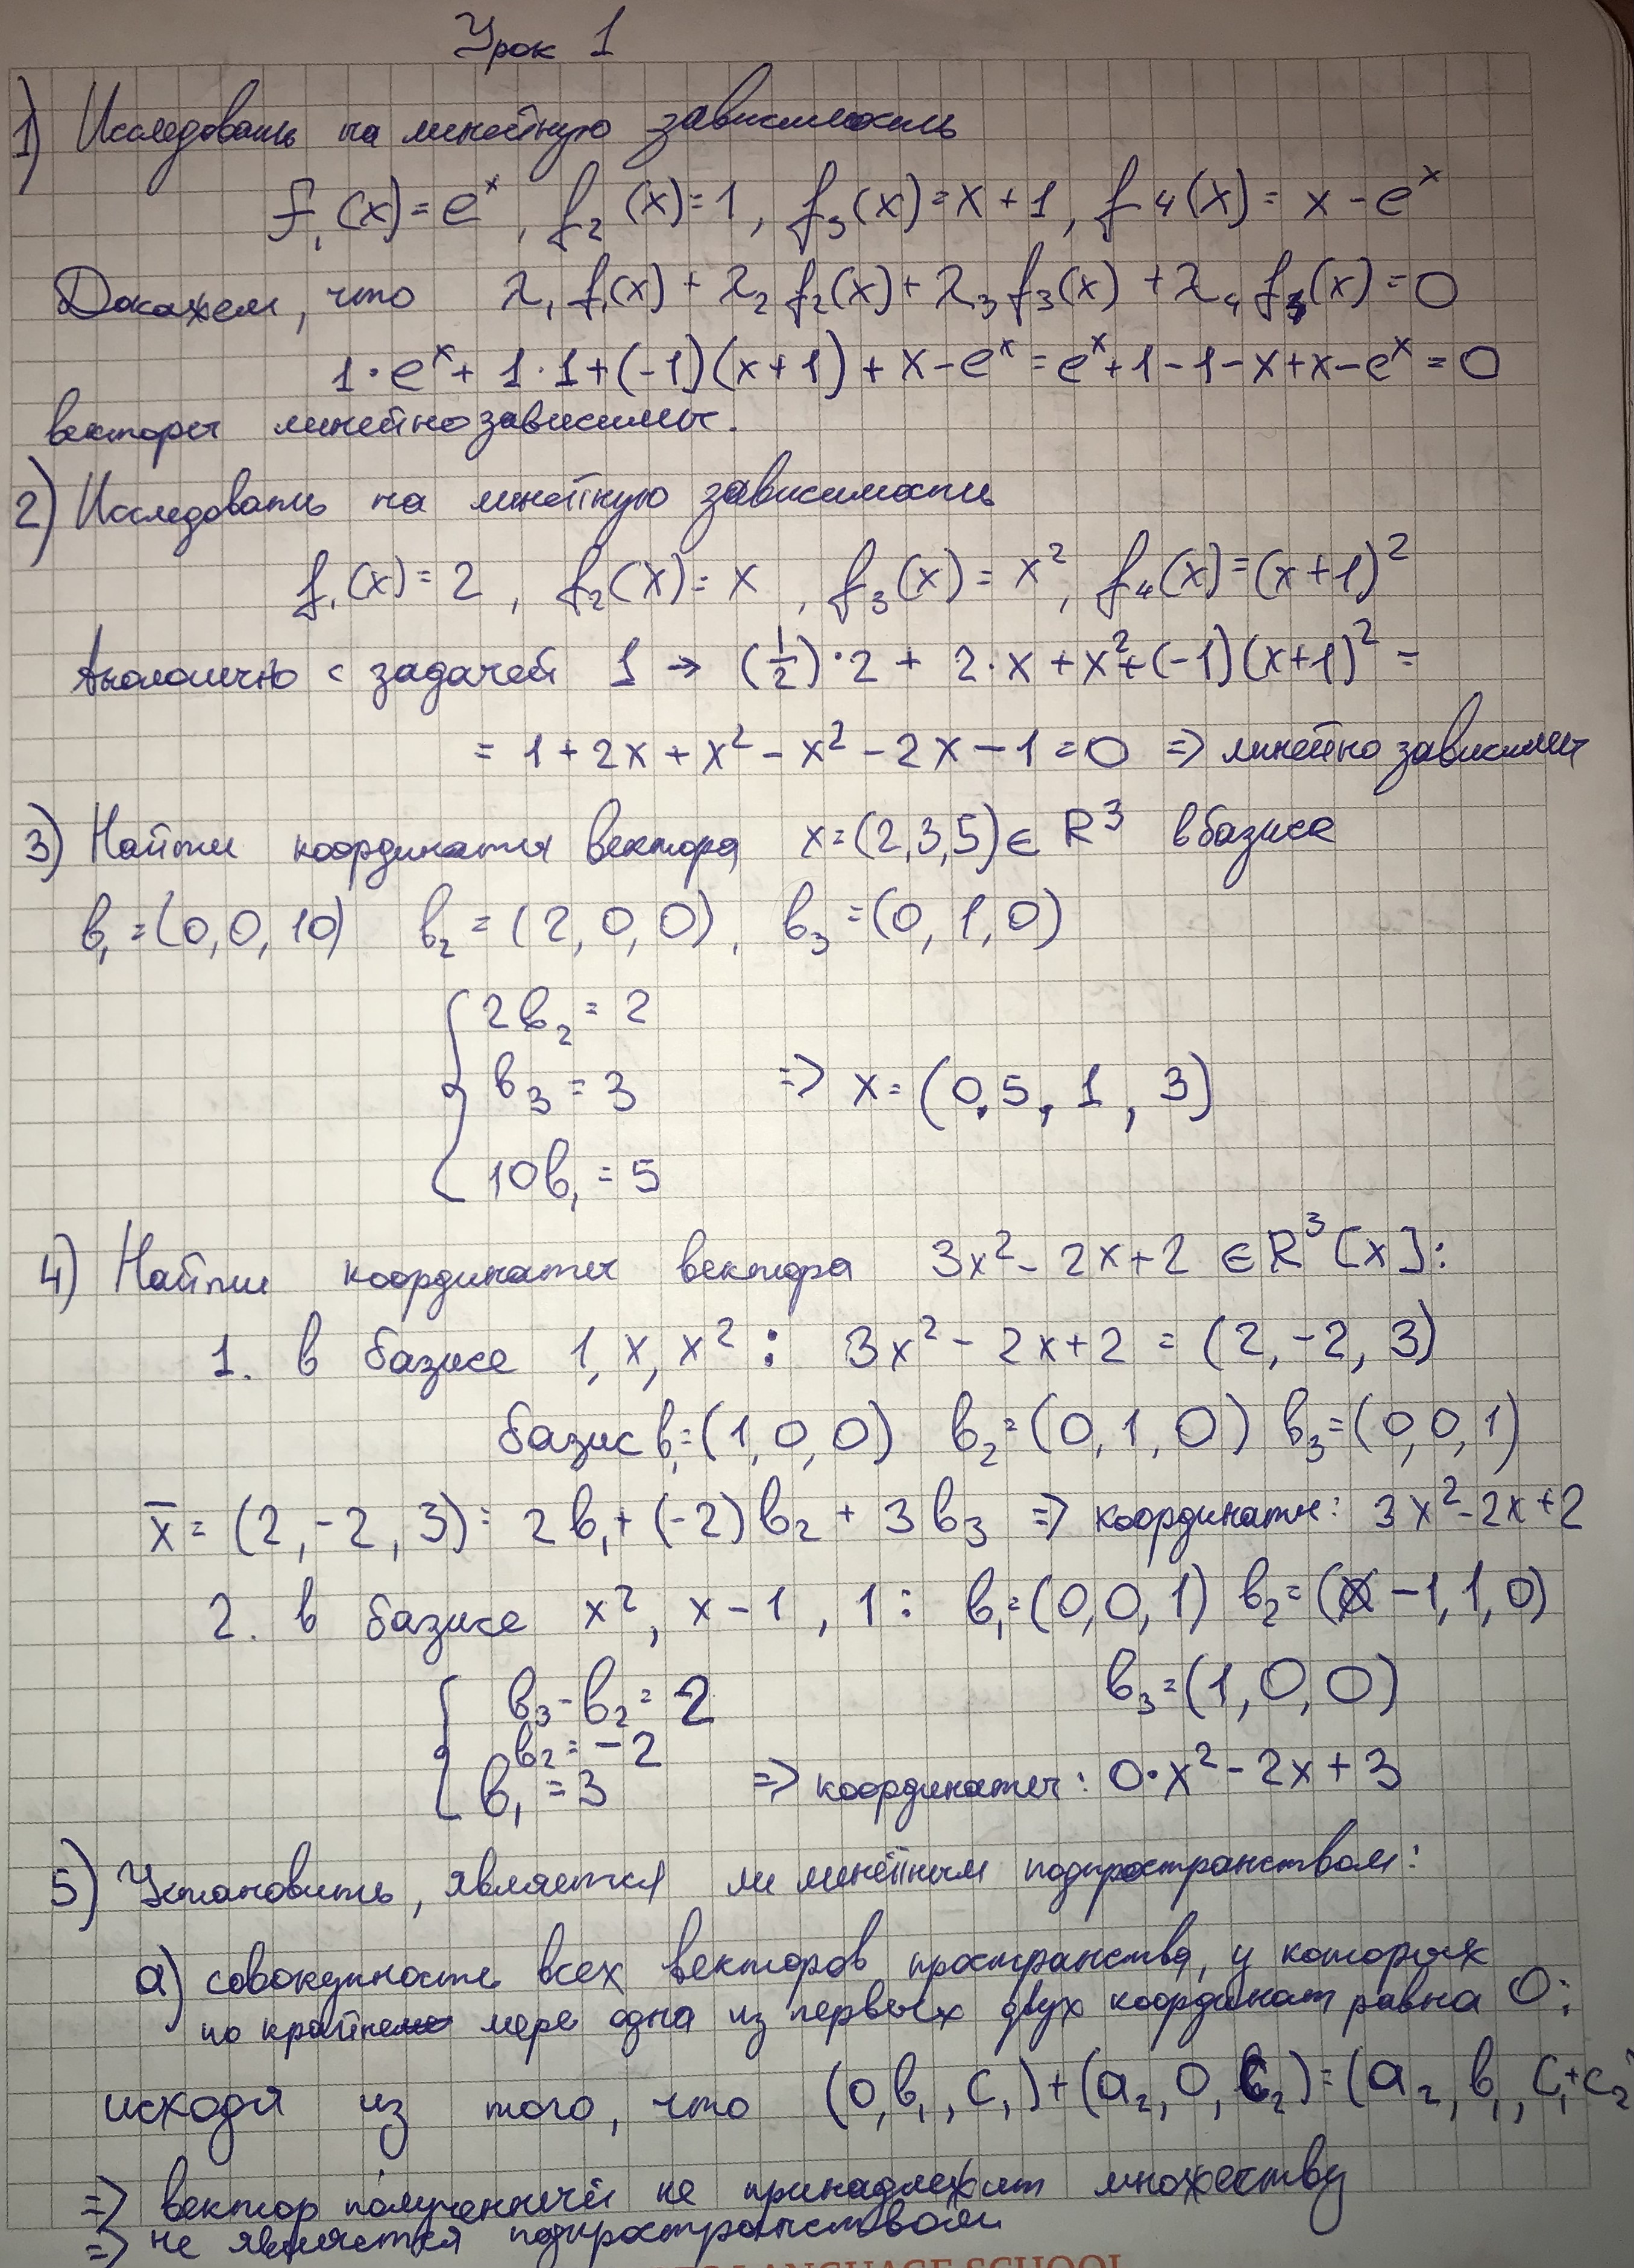 Урок 1
1) Исследовать на линейную зависимость
f₁(x) = eˣ, f₂(x) = 1, f₃(x) = x + 1, f₄(x) = x - eˣ
Докажем, что λ₁f₁(x) + λ₂f₂(x) + λ₃f₃(x) + λ₄f₃(x) = 0
1·eˣ + 1·1 + (-1)(x+1) + x - eˣ = eˣ + 1 - 1 - x + x - eˣ = 0
векторы линейно зависимы.
2) Исследовать на линейную зависимость
f₁(x) = 2, f₂(x) = x, f₃(x) = x², f₄(x) = (x+1)²
Аналогично с задачей 1 → (1/2)·2 + 2·x + x² + (-1)(x+1)² =
= 1 + 2x + x² - x² - 2x - 1 = 0 => линейно зависимы
3) Найти координаты вектора x = (2,3,5) ∈ R³ в базисе
b₁ = (0,0,10) b₂ = (2,0,0), b₃ = (0,1,0)
{ 2b₂ = 2
b₃ = 3 => x = (0.5, 1, 3)
10b₁ = 5
4) Найти координаты вектора 3x² - 2x + 2 ∈ R³[x]:
1. в базисе 1, x, x²: 3x² - 2x + 2 = (2, -2, 3)
базис b₁ = (1,0,0) b₂ = (0,1,0) b₃ = (0,0,1)
x̄ = (2, -2, 3) = 2b₁ + (-2)b₂ + 3b₃ => координаты: 3x² - 2x + 2
2. в базисе x², x - 1, 1: b₁ = (0,0,1) b₂ = (-1,1,0)
b₃ = (1,0,0)
{ b₃ - b₂ = 2
b₂ = -2
b₁ = 3 => координаты: 0·x² - 2x + 3
5) Установить, является ли линейным подпространством:
а) совокупность всех векторов пространства, у которых
по крайней мере одна из первых двух координат равна 0;
исходя из того, что (0, b₁, c₁) + (a₂, 0, c₂) = (a₂, b₁, c₁+c₂
=> вектор полученный не принадлежит множеству
=> не является подпространством
LANGUAGE SCHOOL